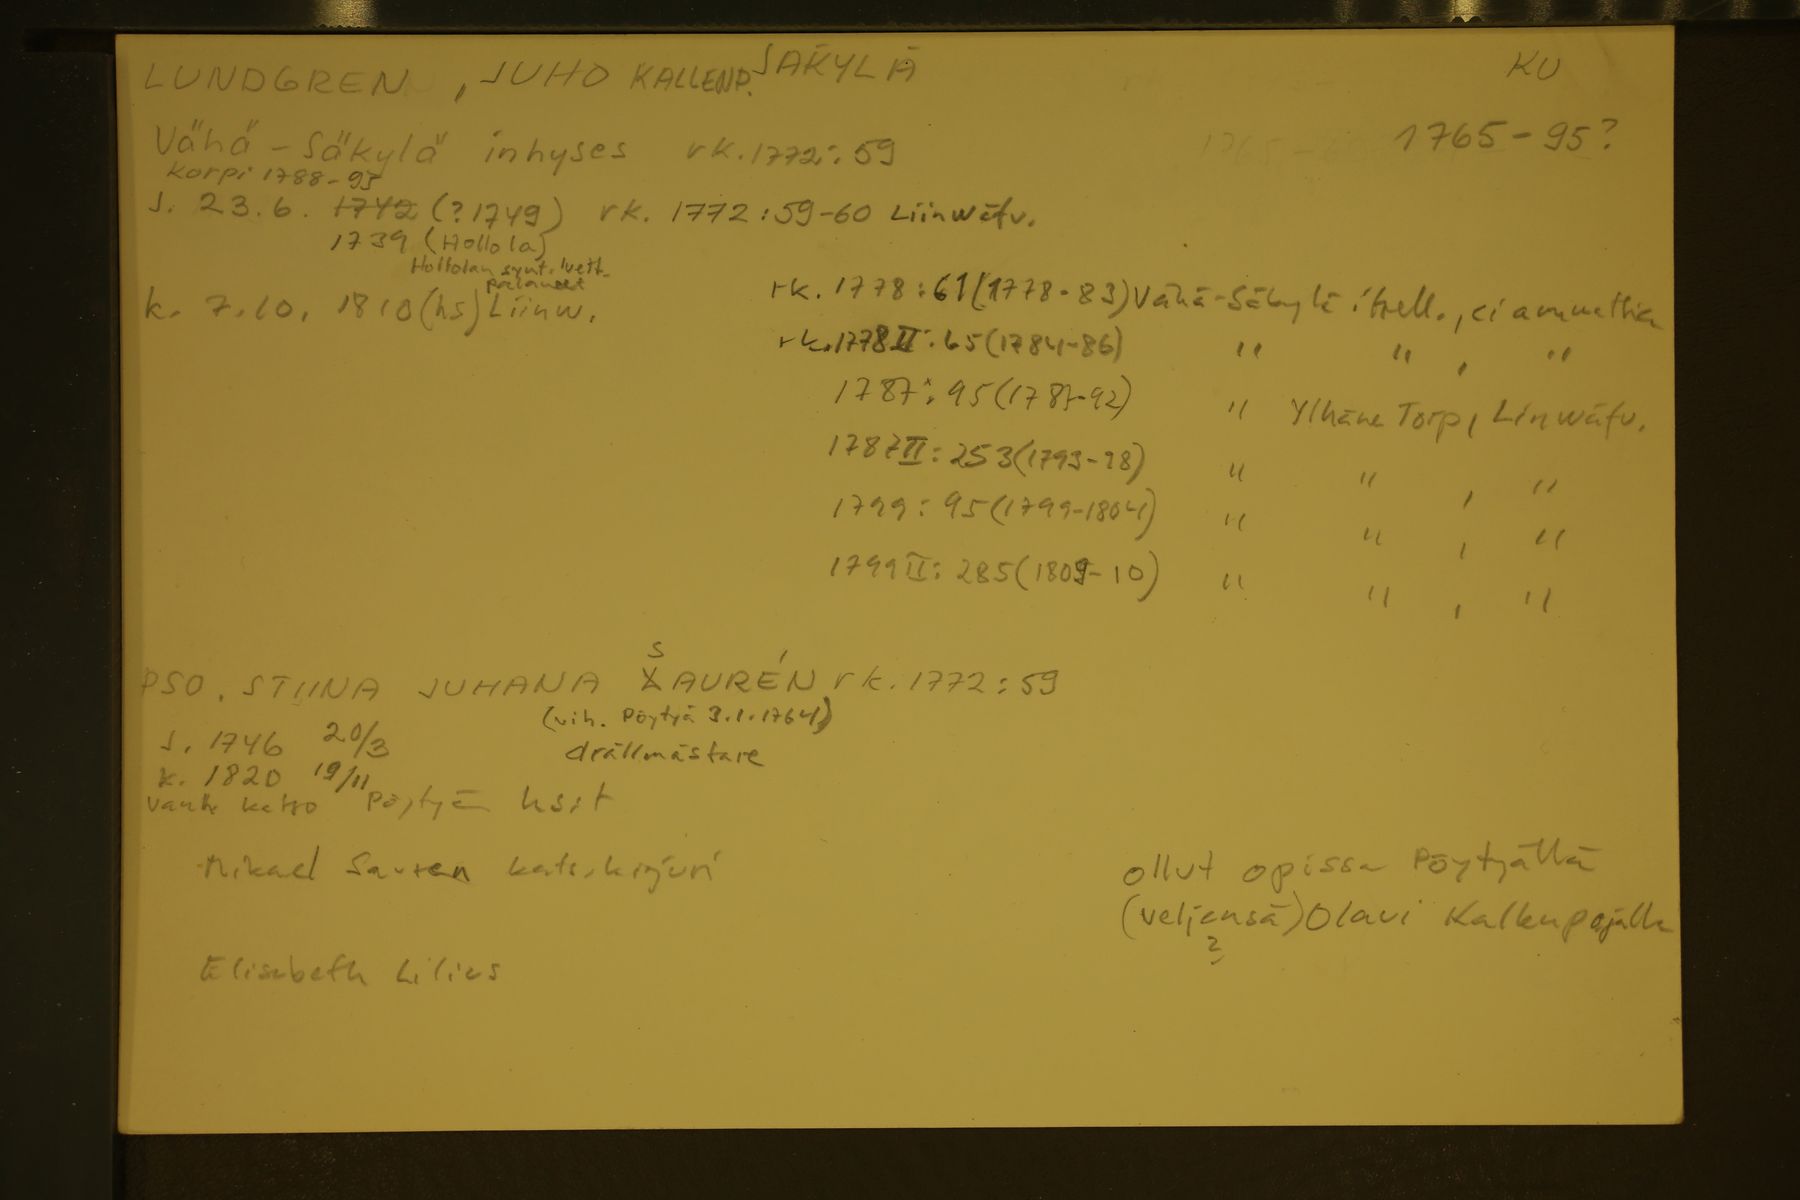 LUNDGREN, JUHO KALLENP. SÄKYLÄ KU
Vähä-Säkylä inhyses rk. 1772:59 1765-95?
Korpi 1788-95
s. 23.6. 1742 (?1749) rk. 1772:59-60 Liinwäfv.
1739 (Hollola)
Hollolan synt. luett.
palaneet
k. 7.10. 1810 (hs) Liinw.
rk. 1778:61 (1778-83) Vähä-Säkylä itsell., ei ammattia
rk. 1778 II:65 (1784-86) " " , "
1787:95 (1787-92) " Ylhäne Torp, Linwäfv.
1787 II:253 (1793-98) " " , "
1799:95 (1799-1804) " " , "
1799 II:285 (1809-10) " " , "
S
PSO. STIINA JUHANA XAURÉN rk. 1772:59
(vih. Pöytyä 3.1.1764)
s. 1746 20/3 drällmästare
k. 1820 19/11
katso Pöytyän hs:t
Mikael Sauren kats.kirjuri
ollut opissa Pöytyällä
(veljensä) Olavi Kallenpojalla
?
Elisabeth Lilius